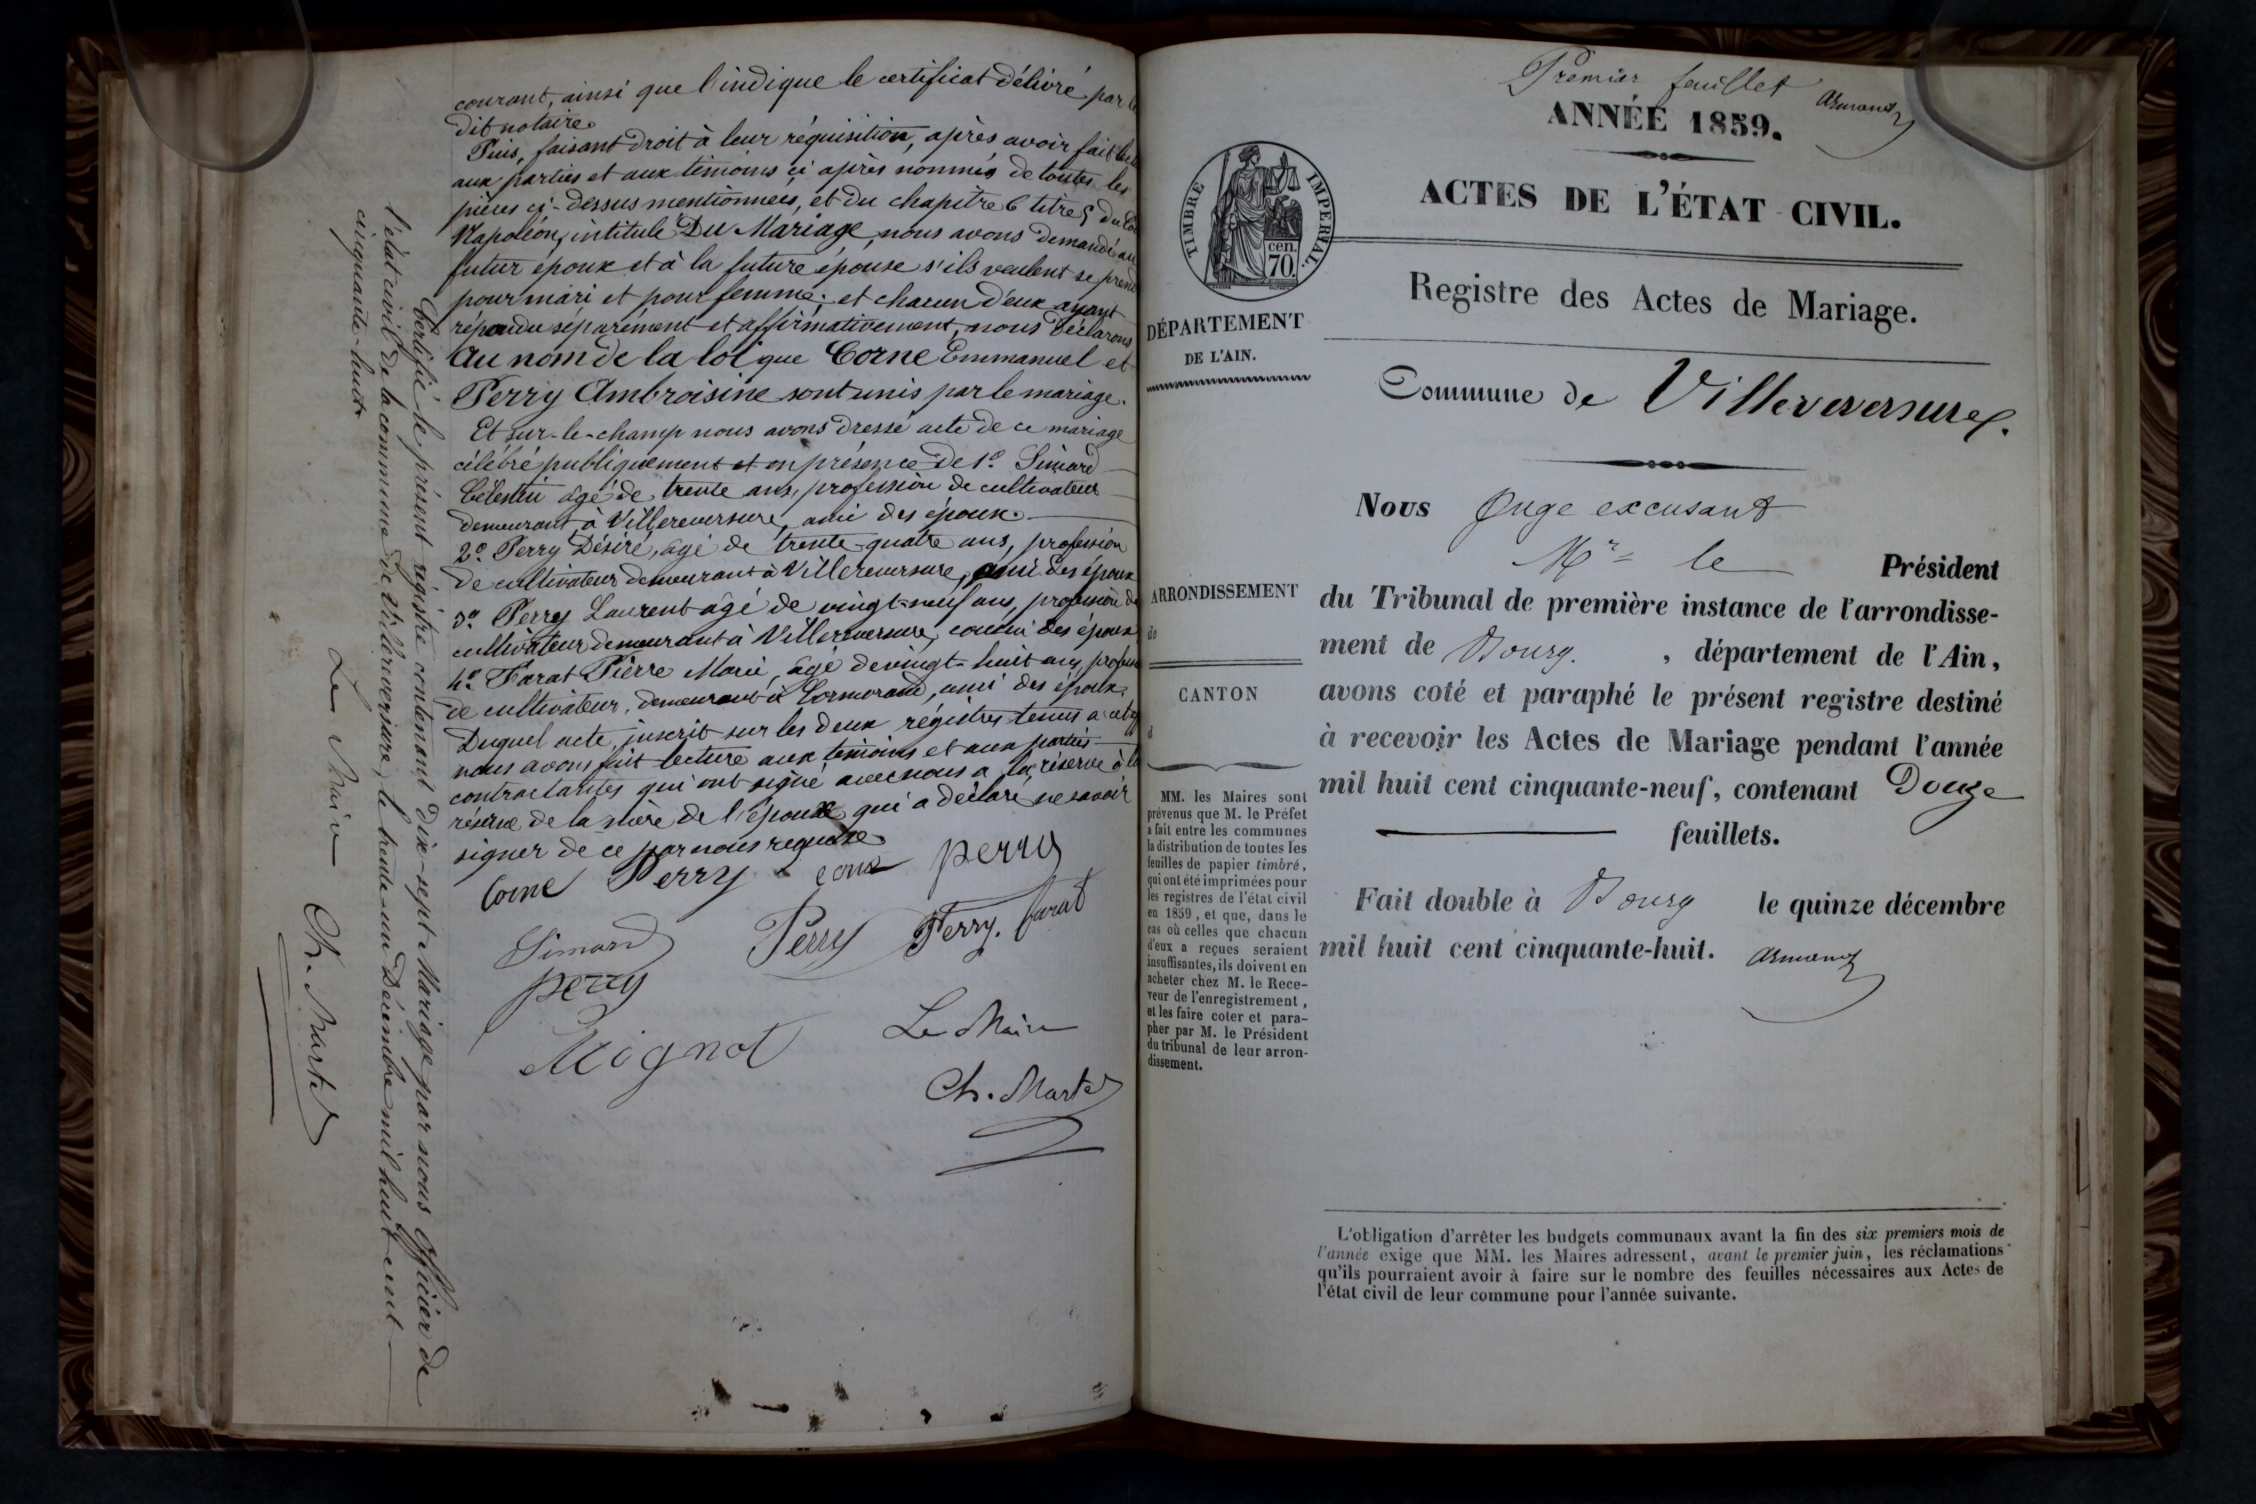 courant, ainsi que l'indique le certificat délivré par le
dit notaire.
Puis, faisant droit à leur réquisition, après avoir fait
aux parties et aux témoins ci après nommés de toutes les
pièces ci-dessus mentionnées, et du chapitre 6 titre 5 du
Napoléon, intitulé Du Mariage, nous avons demandé au
futur époux et à la future épouse s'ils veulent se prend
pour mari et pour femme; et chacun d'eux ayant
répondu séparément et affirmativement, nous déclarons
au nom de la loi que Corne Emmanuel et
Perry Ambroisine sont unis par le mariage.
Et sur-le-champ nous avons dressé acte de ce mariage
célébré publiquement et en présence de 1º Simard
Célestin âgé de trente ans, profession de cultivateur
demeurant à Villereversure, ami des époux.
2º Perry Désiré, âgé de trente-quatre ans, profession
de cultivateur demeurant à Villereversure, ami des époux
3º Perry Laurent âgé de vingt-neuf ans, profession de
cultivateur demeurant à Villereversure, cousin des époux
4º Farat Pierre Marie, âgé de vingt-huit ans, profess
de cultivateur, demeurant à Cormorand, ami des époux.
Duquel acte, inscrit sur les deux régistres tenus a cet
nous avons fait lecture aux témoins et aux parties
contractantes qui ont signé avec nous a la réserve à la
réserve de la mère de l'épouse qui a déclaré ne savoir
signer de ce par nous requise
Corne Perry corne perry
Simard Perry Perry. farat
perry
Mignot
Le Maire
Ch. Martel
Certifié le présent régistre contenant dix-sept Mariage par nous Officier de
l'état civil de la commune de Villereversure, le trente-un Décembre mil huit cent
cinquante-huit
Le Maire
Ch. Martel
Premier feuillet
Armand
ANNÉE 1859.
ACTES DE L'ÉTAT CIVIL.
TIMBRE IMPERIAL.
cen.
70.
Registre des Actes de Mariage.
DÉPARTEMENT
DE L'AIN.
Commune de Villereversure.
Nous Juge excusant
Mr le Président
ARRONDISSEMENT
de
du Tribunal de première instance de l'arrondisse-
ment de Bourg. , département de l'Ain,
CANTON
d
avons coté et paraphé le présent registre destiné
à recevoir les Actes de Mariage pendant l'année
mil huit cent cinquante-neuf, contenant Douze
feuillets.
MM. les Maires sont
prévenus que M. le Préfet
a fait entre les communes
la distribution de toutes les
feuilles de papier timbré,
qui ont été imprimées pour
les registres de l'état civil
en 1859, et que, dans le
cas où celles que chacun
d'eux a reçues seraient
insuffisantes, ils doivent en
acheter chez M. le Rece-
veur de l'enregistrement,
et les faire coter et para-
pher par M. le Président
du tribunal de leur arron-
dissement.
Fait double à Bourg le quinze décembre
mil huit cent cinquante-huit.
Armand
L'obligation d'arrêter les budgets communaux avant la fin des six premiers mois de
l'année exige que MM. les Maires adressent, avant le premier juin, les réclamations
qu'ils pourraient avoir à faire sur le nombre des feuilles nécessaires aux Actes de
l'état civil de leur commune pour l'année suivante.